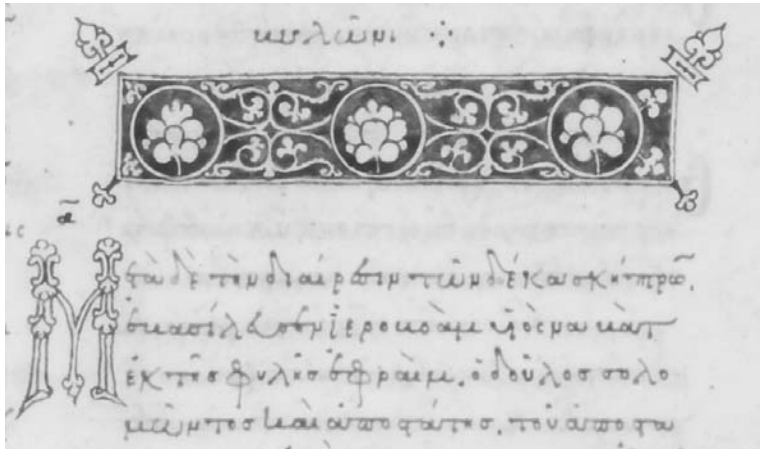 Μετὰ δὲ τὴν διαίρεσιν τῶν δέκα σκήπτρῶ,
ἐβασίλευσεν ἱεροβοὰμ υἱὸς ναβὰτ
ἐκ τῆς φυλῆς ἐφραὶμ. ὁ δοῦλος σολο
μῶντος καὶ ἀποστάτης. τοῦ ἀποστα